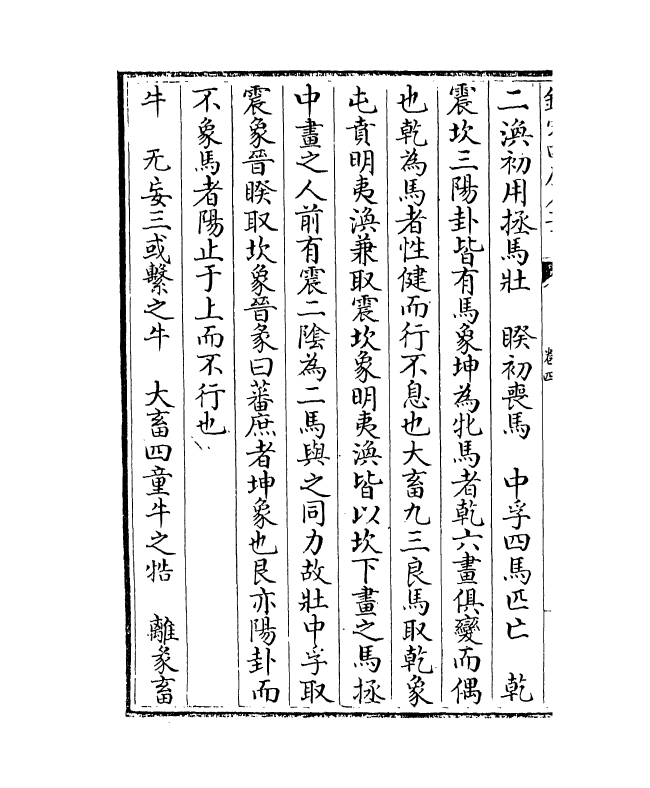 卷四
二　渙初用拯馬壯　睽初喪馬　中孚四馬匹亡　乾
震坎三陽卦皆有馬象坤為牝馬者乾六畫俱變而偶
也乾為馬者性健而行不息也大畜九三良馬取乾象
屯賁明夷渙兼取震坎象明夷渙皆以坎下畫之馬拯
中畫之人前有震二陰為二馬與之同力故壯中孚取
震象晉睽取坎象晉彖曰蕃庶者坤象也艮亦陽卦而
不象馬者陽止于上而不行也
牛　无妄三或繫之牛　大畜四童牛之牿　離彖畜